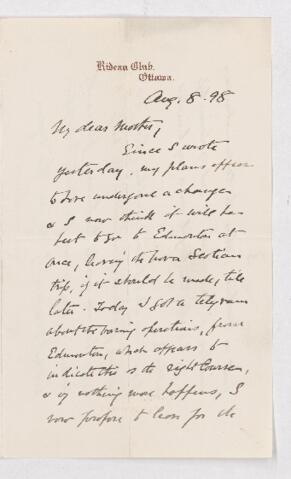 Rideau Club.
Ottawa.
Aug. 8 - 98
My dear Mother,
Since I wrote
yesterday, my plans appear
to have undergone a change
& I now think it will be
best to go to Edmonton at
once, leaving the Nova Scotian
trip, if it should be made, till
later. Today I got a telegram
about the boring operations, from
Edmonton, which appears to
indicate this as the right course,
& if nothing more happens, I
now propose to leave for the